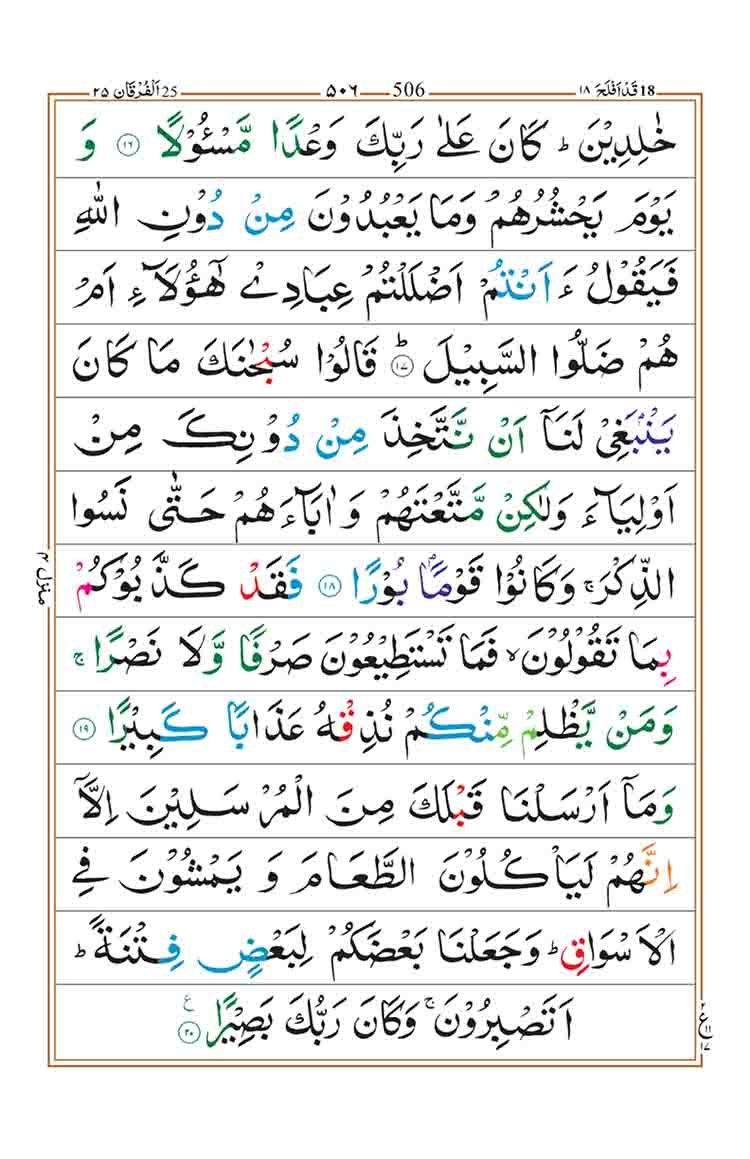 قَدْ اَفْلَحَ ١٨ 18 506 ٥٠٦ اَلْفُرْقَان ٢٥ 25
خٰلِدِيْنَ ؕ كَانَ عَلٰى رَبِّكَ وَعْدًا مَّسْـُٔوْلًا ۝١٦ وَ
يَوْمَ يَحْشُرُهُمْ وَمَا يَعْبُدُوْنَ مِنْ دُوْنِ اللّٰهِ
فَيَقُوْلُ ءَاَنْتُمْ اَضْلَلْتُمْ عِبَادِيْ هٰٓؤُلَآءِ اَمْ
هُمْ ضَلُّوا السَّبِيْلَ ؕ۝١٧ قَالُوْا سُبْحٰنَكَ مَا كَانَ
يَنْۢبَغِيْ لَنَاۤ اَنْ نَّتَّخِذَ مِنْ دُوْنِكَ مِنْ
اَوْلِيَآءَ وَلٰكِنْ مَّتَّعْتَهُمْ وَاٰبَآءَهُمْ حَتّٰى نَسُوا
الذِّكْرَ ۚ وَكَانُوْا قَوْمًاۢ بُوْرًا ۝١٨ فَقَدْ كَذَّبُوْكُمْ
بِمَا تَقُوْلُوْنَ ۙ فَمَا تَسْتَطِيْعُوْنَ صَرْفًا وَّلَا نَصْرًا ۚ
وَمَنْ يَّظْلِمْ مِّنْكُمْ نُذِقْهُ عَذَابًا كَبِيْرًا ۝١٩
وَمَاۤ اَرْسَلْنَا قَبْلَكَ مِنَ الْمُرْسَلِيْنَ اِلَّاۤ
اِنَّهُمْ لَيَاْكُلُوْنَ الطَّعَامَ وَيَمْشُوْنَ فِي
الْاَسْوَاقِ ؕ وَجَعَلْنَا بَعْضَكُمْ لِبَعْضٍ فِتْنَةً ؕ
اَتَصْبِرُوْنَ ۚ وَكَانَ رَبُّكَ بَصِيْرًا ۝٢٠ ع
منزل ٤
٢
ع ١١
١٧